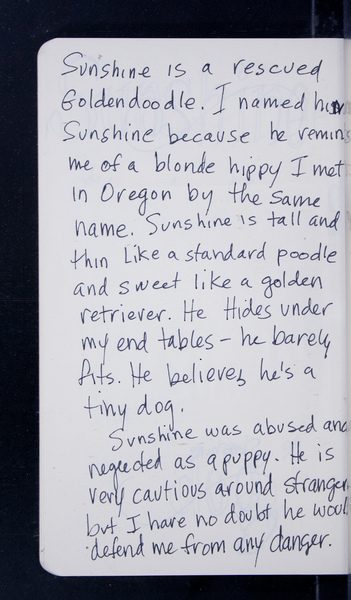 Sunshine is a rescued
Goldendoodle. I named him
Sunshine because he remins
me of a blonde hippy I met
in Oregon by the same
name. Sunshine is tall and
thin like a standard poodle
and sweet like a golden
retriever. He Hides under
my end tables - he barely
fits. He believes he's a
tiny dog.
Sunshine was abused and
neglected as a puppy. He is
very cautious around stranger
but I have no doubt he woul
defend me from any danger.